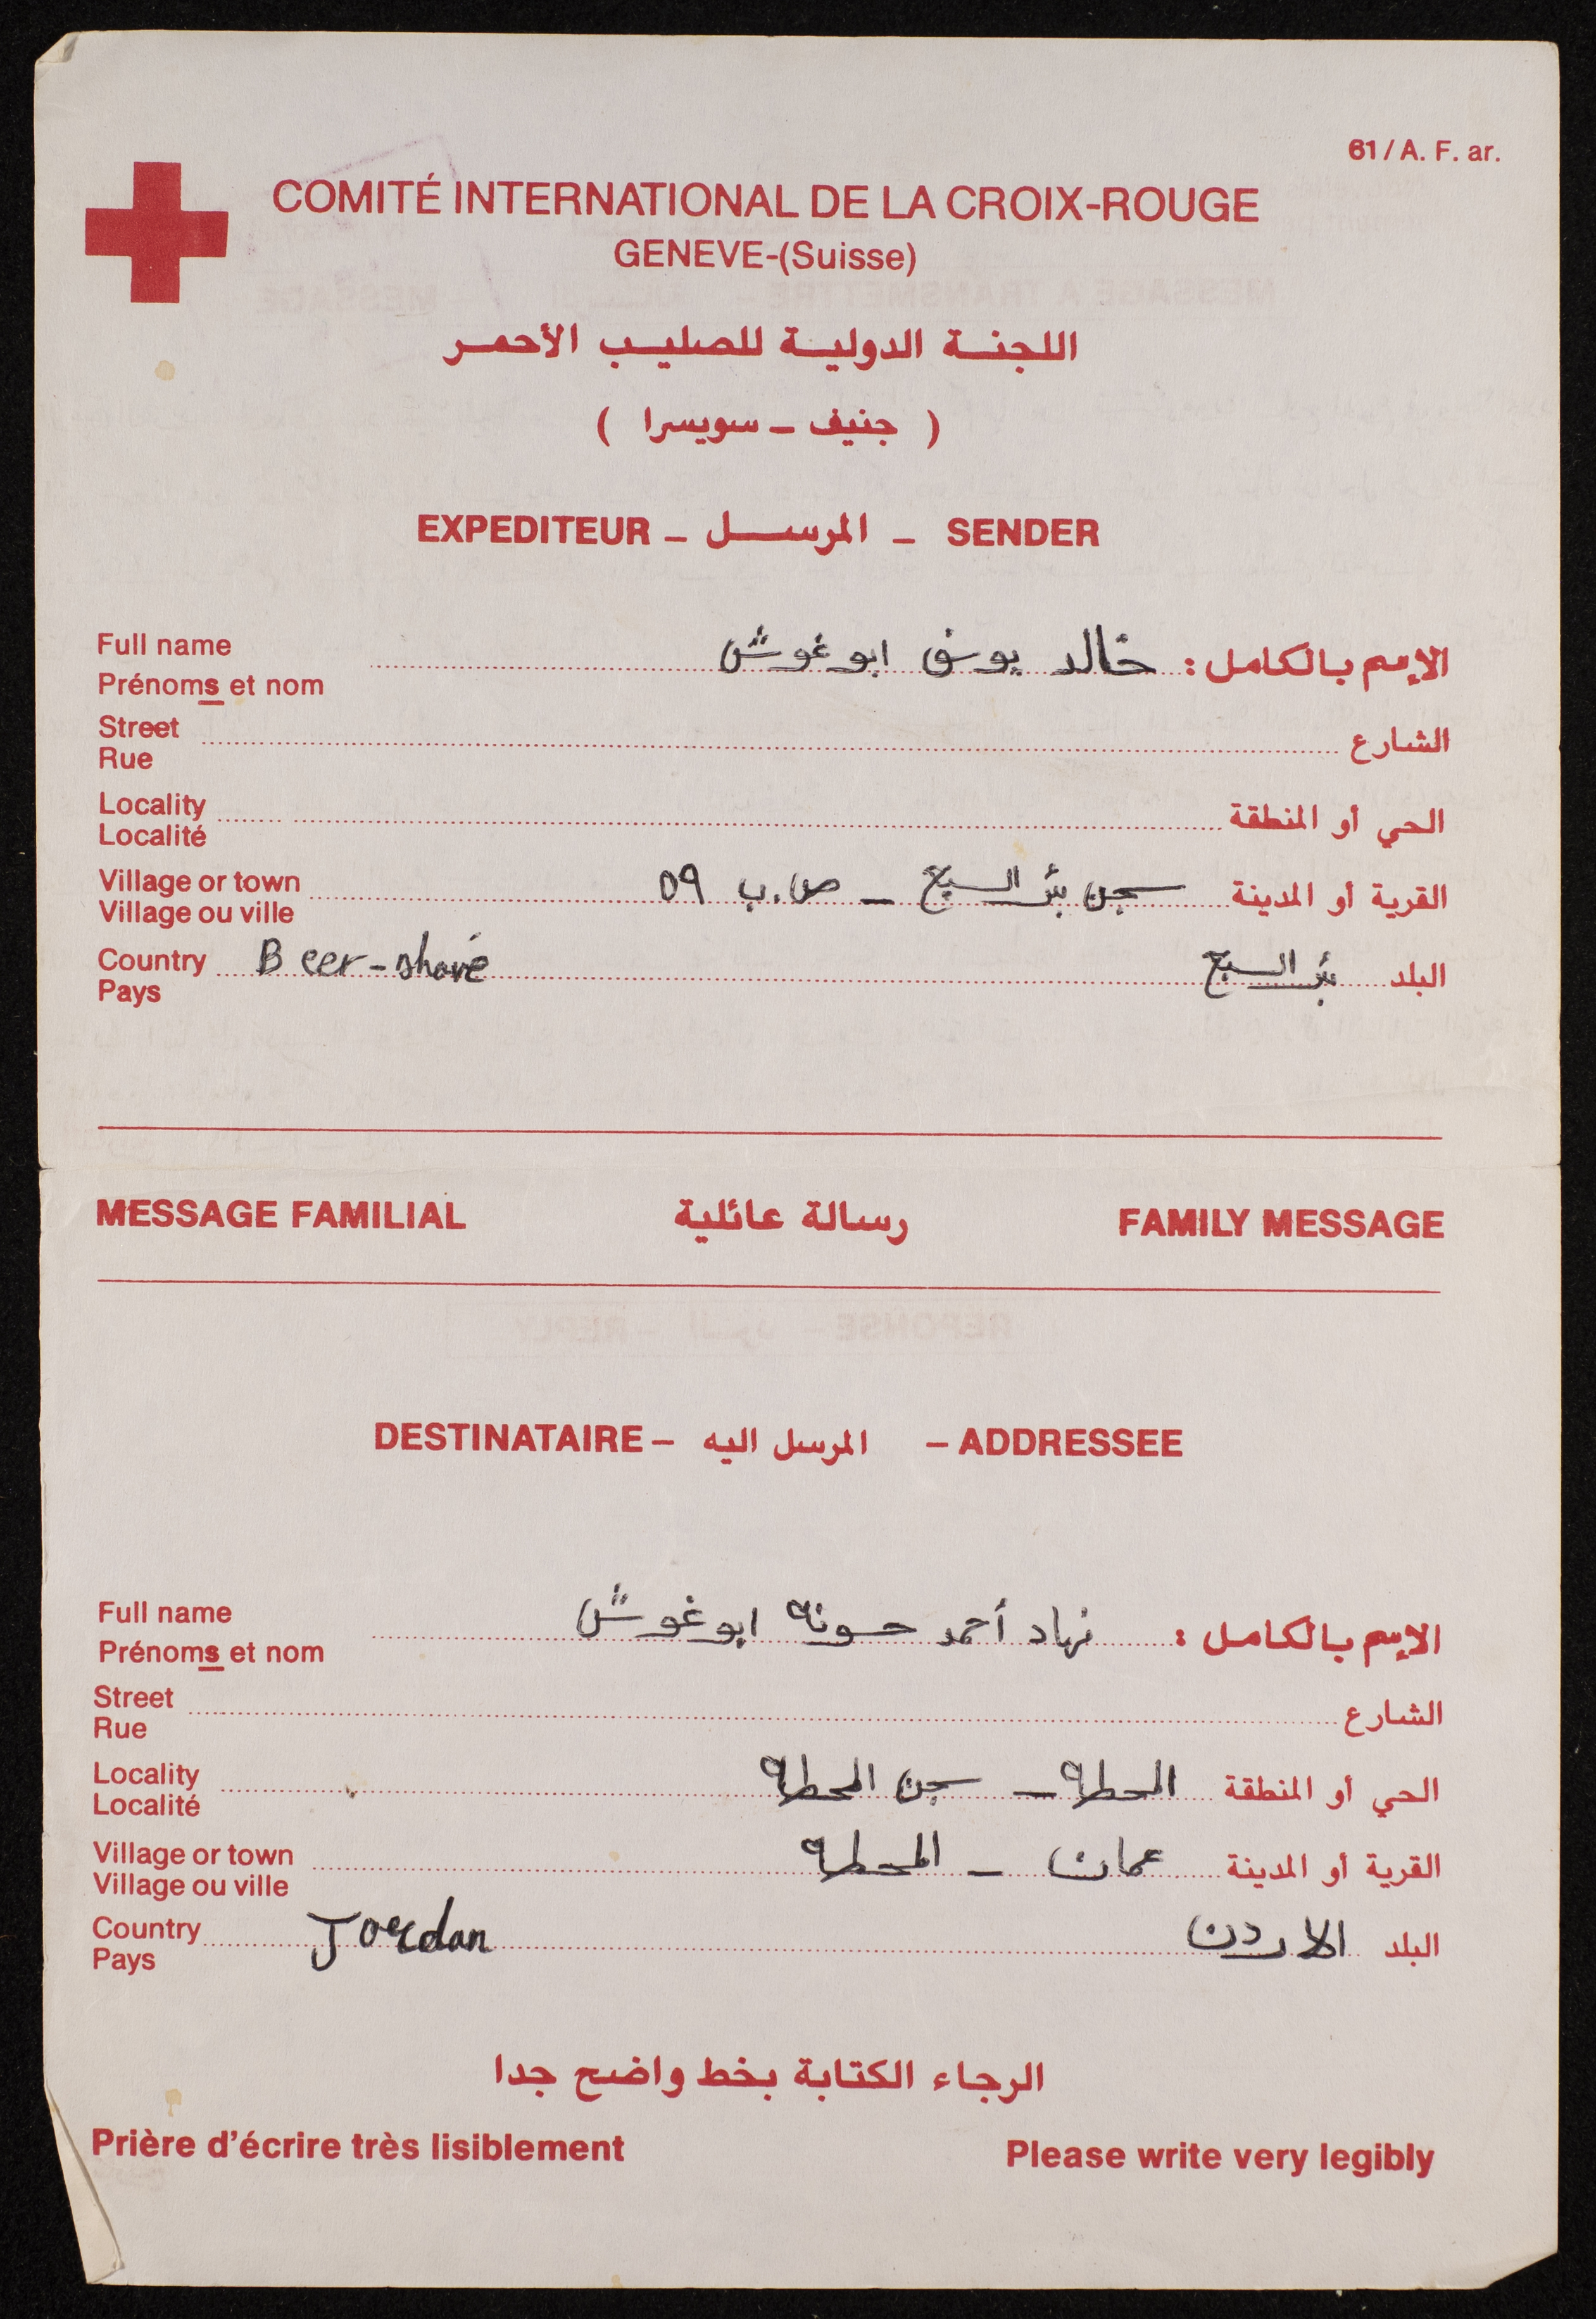 61 / A. F. ar.
COMITÉ INTERNATIONAL DE LA CROIX-ROUGE
GENEVE-(Suisse)
اللجنة الدولية للصليب الأحمر
( جنيف - سويسرا )
EXPEDITEUR - المرسل - SENDER
Full name خالد يوسف ابو غوش الإسم بالكامل :
Prénoms et nom
Street الشارع
Rue
Locality الحي أو المنطقة
Localité
Village or town سجن بئر السبع - ص.ب ٥٩ القرية أو المدينة
Village ou ville
Country Beer-shave بئر السبع البلد
Pays
MESSAGE FAMILIAL رسالة عائلية FAMILY MESSAGE
DESTINATAIRE - المرسل اليه - ADDRESSEE
Full name نهاد أحمد حسونة ابو غوش الإسم بالكامل :
Prénoms et nom
Street الشارع
Rue
Locality المحطة - سجن المحطة الحي أو المنطقة
Localité
Village or town عمان - المحطة القرية أو المدينة
Village ou ville
Country Jordan الاردن البلد
Pays
الرجاء الكتابة بخط واضح جدا
Prière d'écrire très lisiblement Please write very legibly